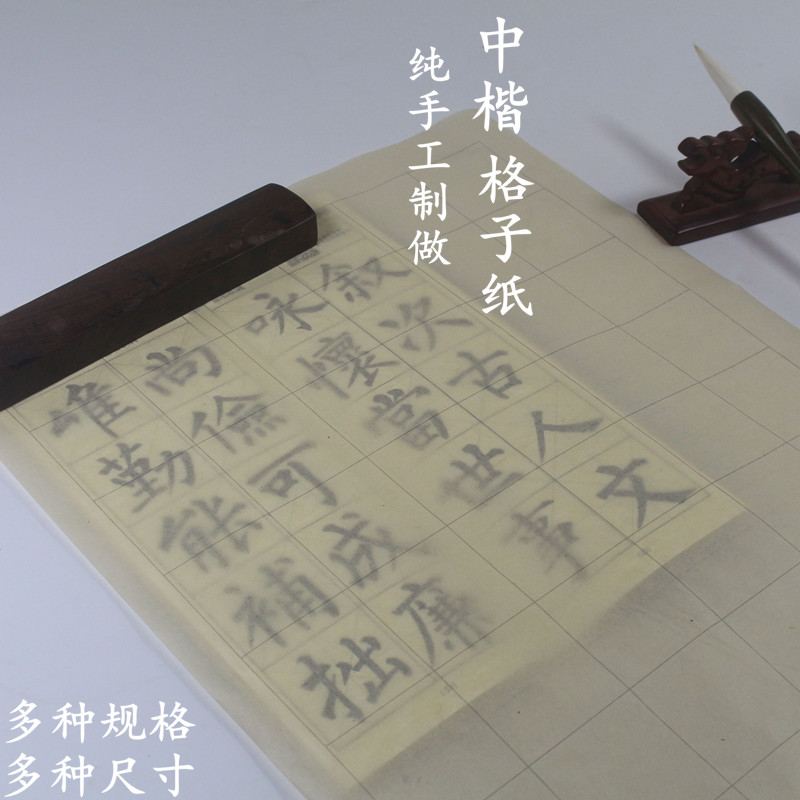 中楷格子纸
纯手工制做
叙次古人文
咏懷當世事
尚儉可成廉
惟勤能補拙
多种规格
多种尺寸